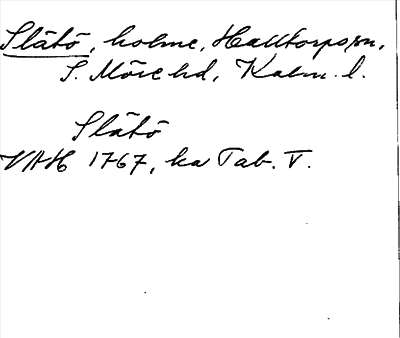 Slätö, holme, Halltorps sn,
S. Möre hd, Kalm. l.
Slätö
VAH 1767, ka Tab. V.